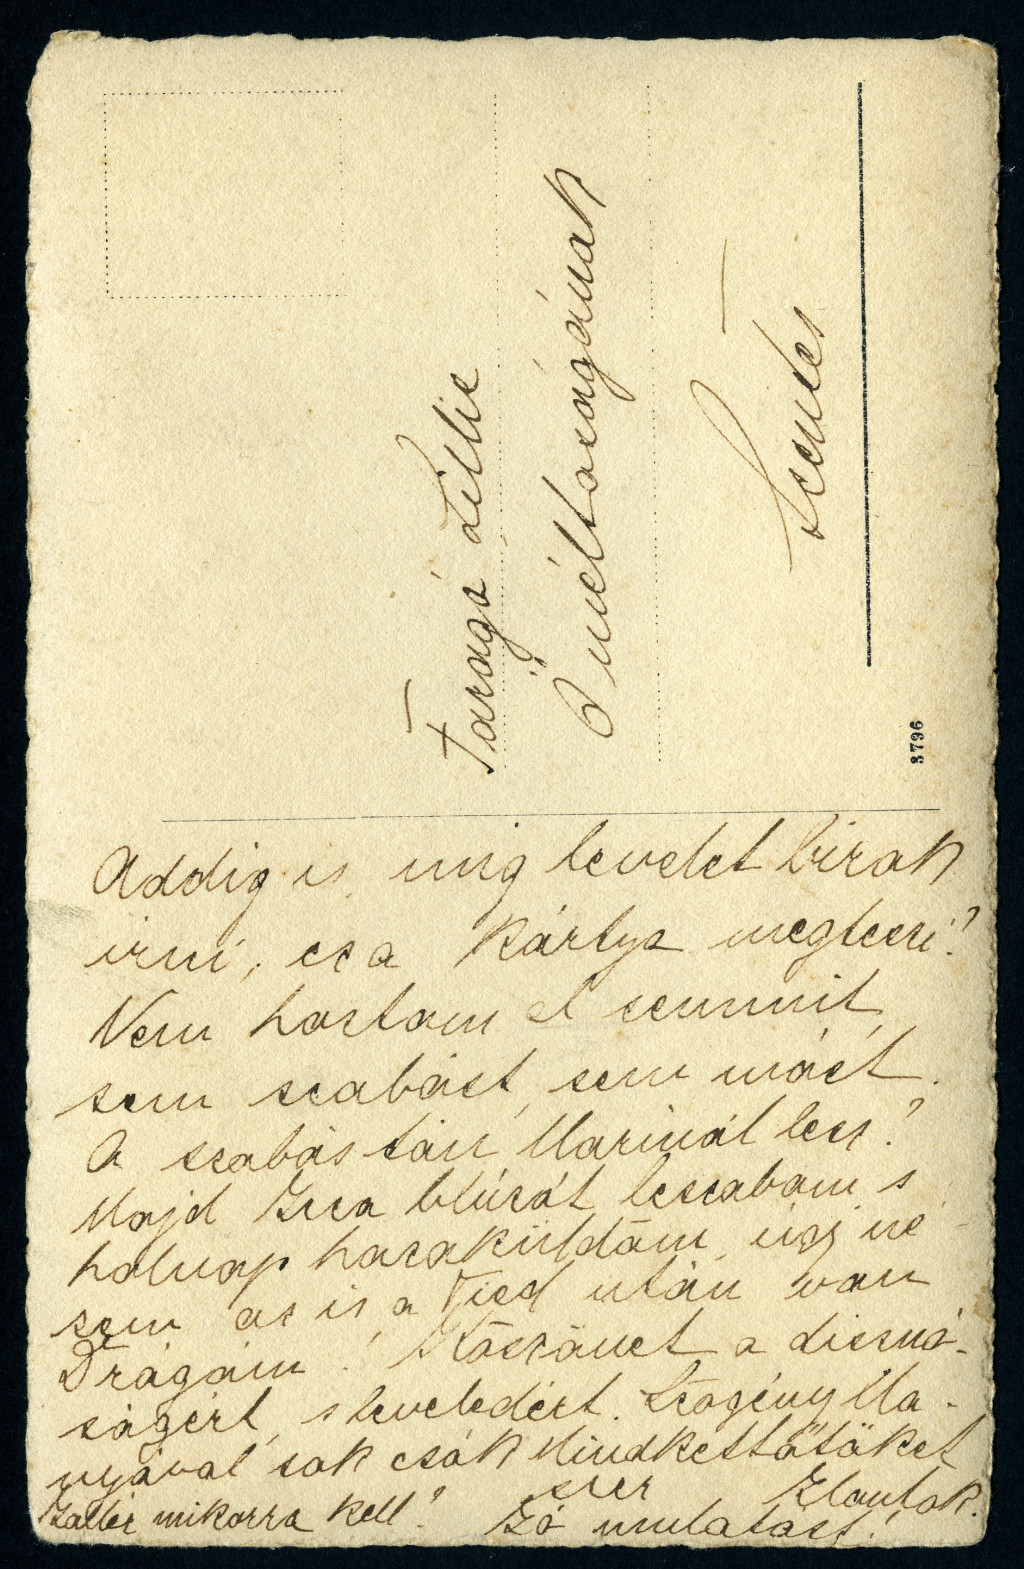 Faragó Lillie
Őméltóságának
Szentes
3796
Addig is mig levelet birok
irni, ez a kártya megteszi?
Nem hoztam el semmit,
sem szabást, sem mást.
A szabás tán Marinál lesz?
Majd Icza blúzát leszabom s
holnap hazaküldöm, úgy né-
zem az is a Tied után van
Drágám! Köszönet a disznó-
ságért, s leveledért. Szegény Ma-
nyával sok csók Mindkettőtöket
szer
Zallér mikorra kell? Jó mulatást!